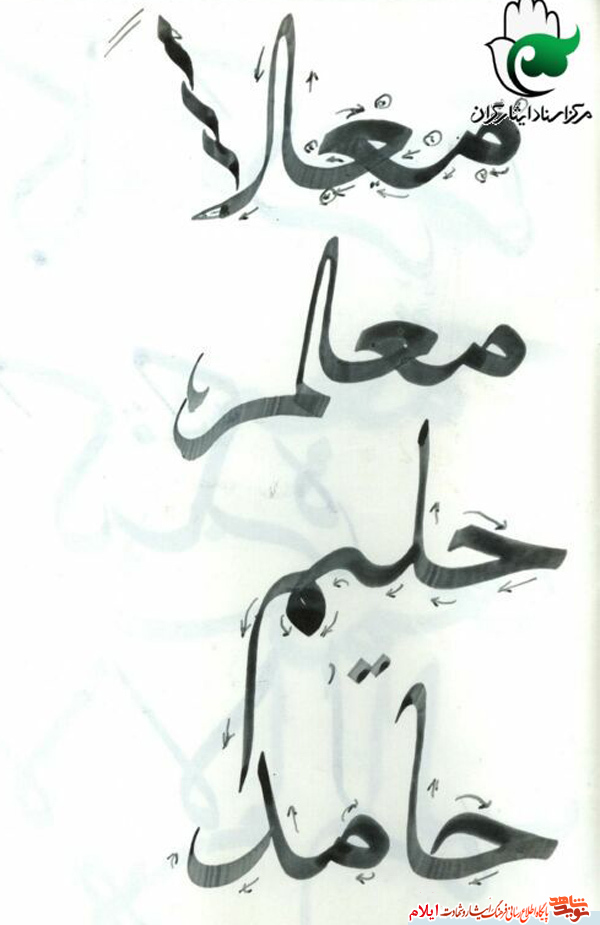 مرکز اسناد ایثارگران
معلم
حلیم
حامد
نوید شاهد
پایگاه اطلاع رسانی فرهنگ ایثار و شهادت ایلام